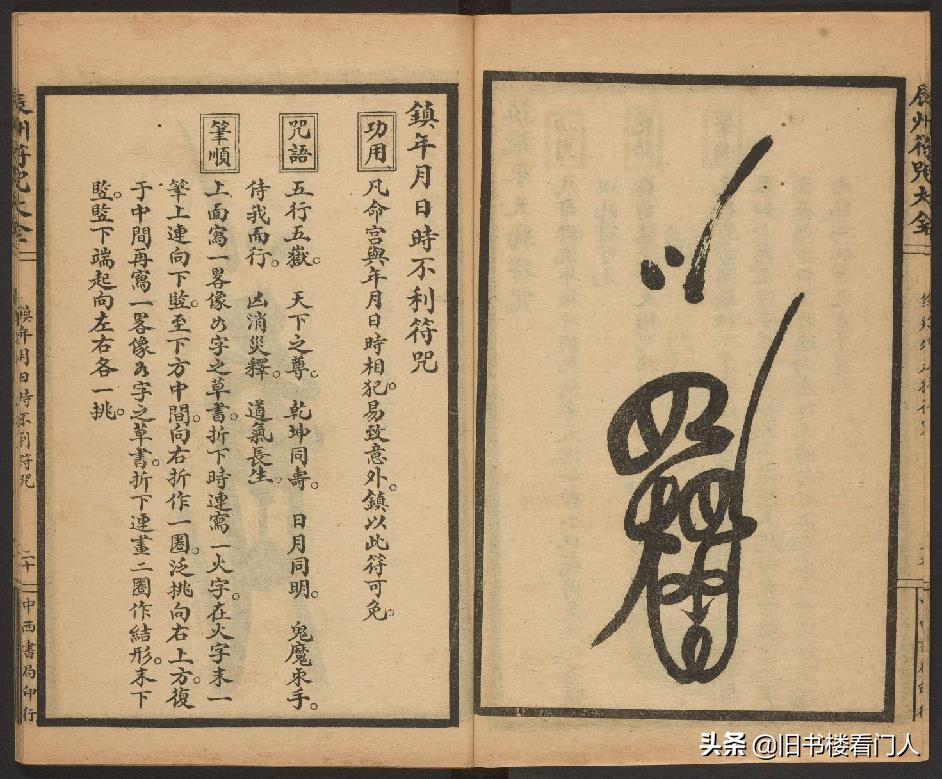 辰州符咒大全
鎮年月日時不利符咒
功用
凡命宮與年月日時相犯。易致意外。鎮以此符可免。
咒語
五行五嶽。 天下之尊。 乾坤同壽。 日月同明。 鬼魔束手。
侍我而行。 凶消災釋。 道氣長生。
筆順
上面寫一畧像字之草書。折下時連寫一火字。在火字末一
筆上連向下竪。至下方中間。向右折作一圈。泛挑向右上方。復
于中間再寫一畧像字之草書。折下連畫二圈作結形。末下
竪。竪下端起向左右各一挑。
辰州符咒大全
鎮年月日時不利符咒
二十
中西書局印行
头条 @旧书楼看门人